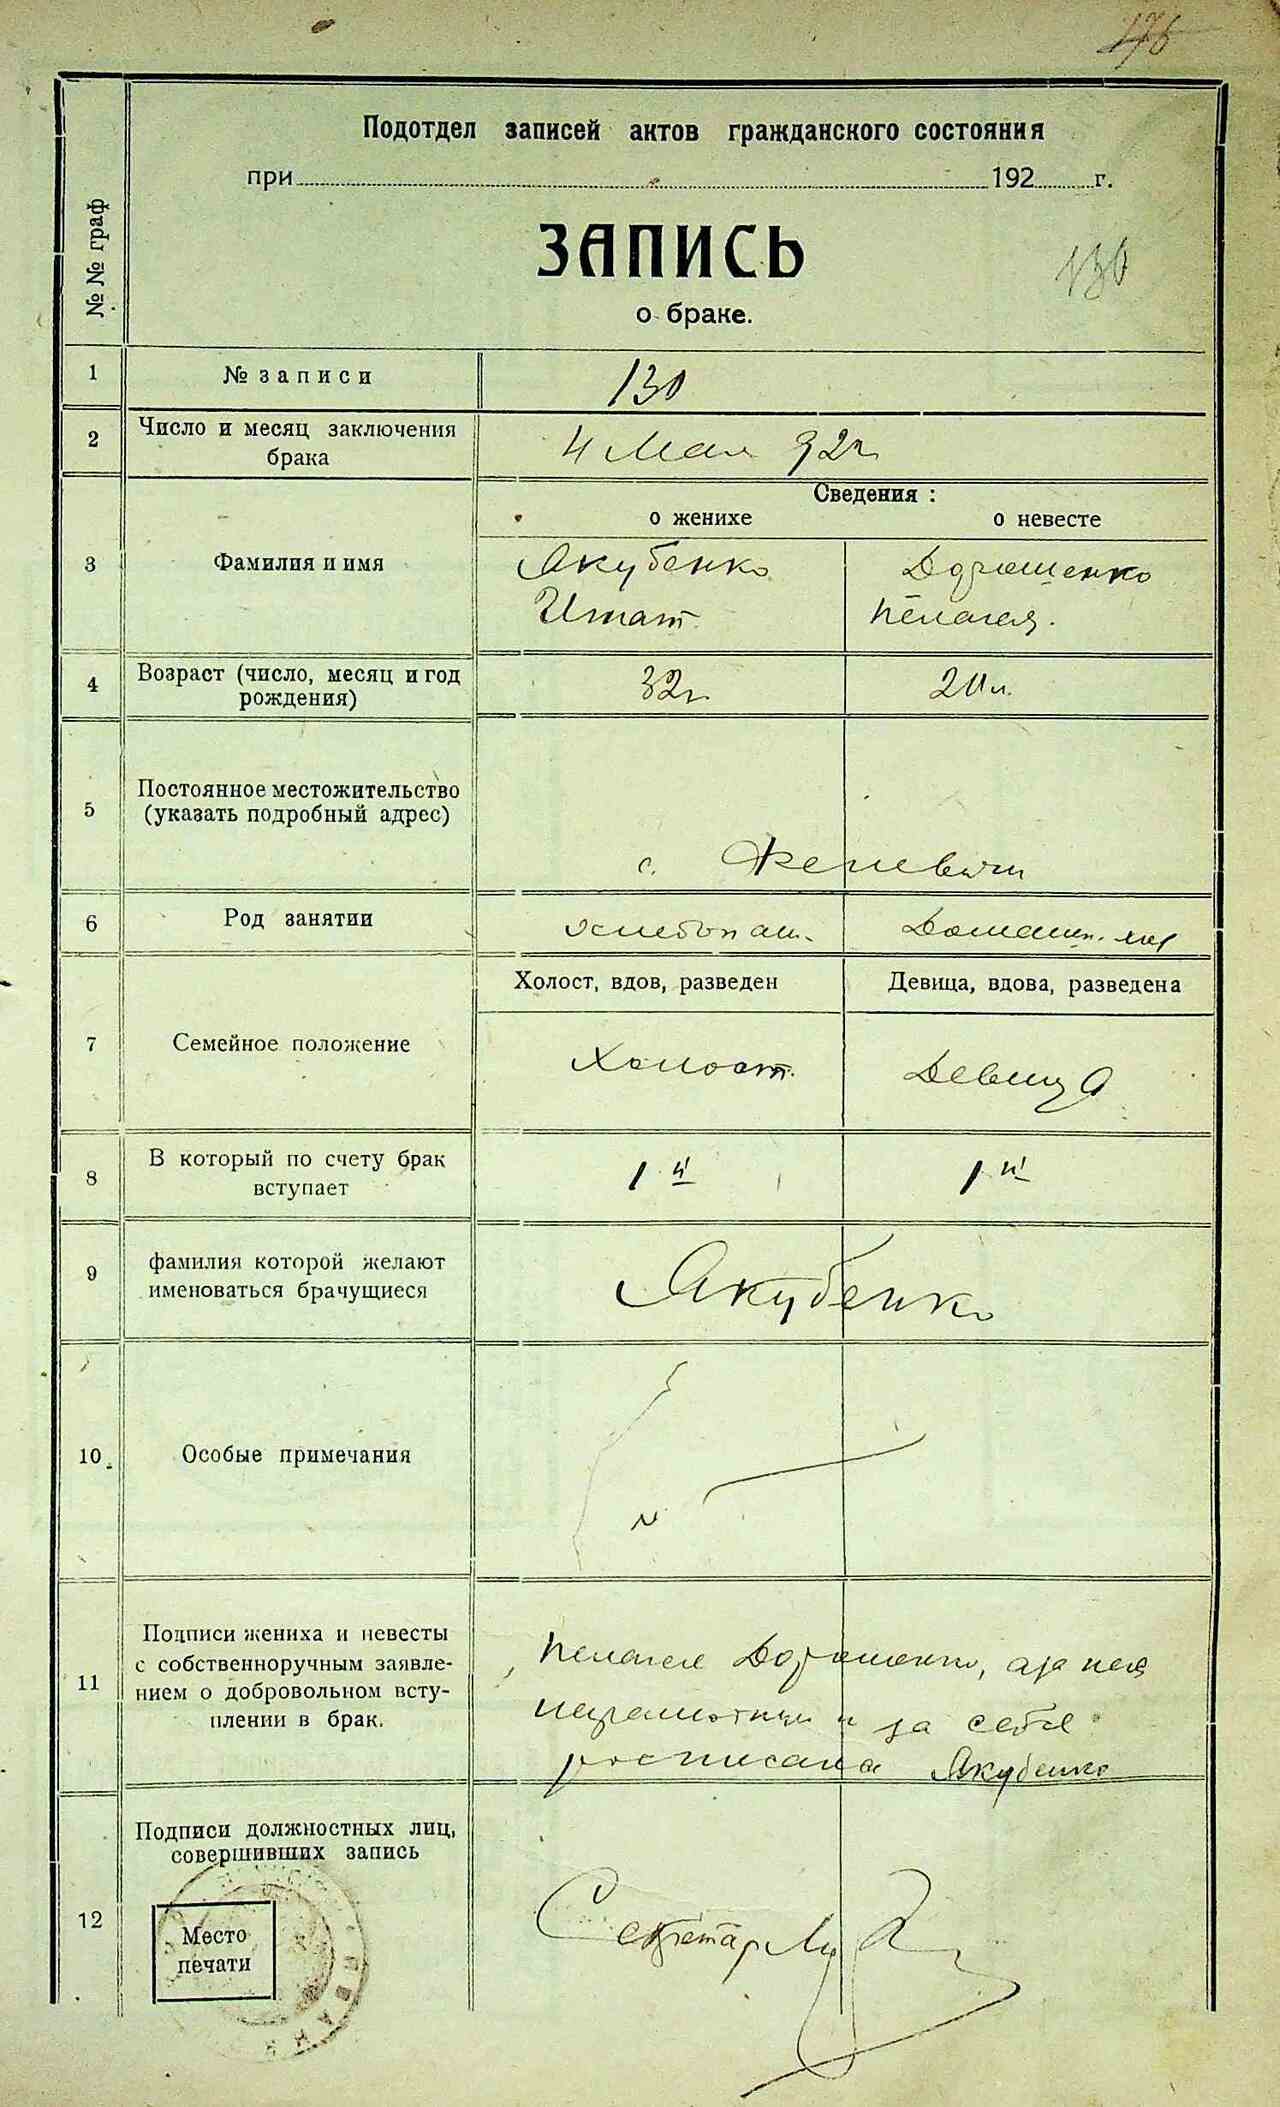 176
№№ граф
Подотдел записей актов гражданского состояния
при 192 г.
ЗАПИСЬ
о браке.
130
1 № записи 130
2 Число и месяц заключения
брака
4 Мая 92 г.
Сведения :
о женихе о невесте
3 Фамилия и имя
Якубенко Дорошенко
Игнат. Пелагея.
4 Возраст (число, месяц и год
рождения)
32 г. 20 л.
5 Постоянное местожительство
(указать подробный адрес)
с.
6 Род занятии
хлебопаш. Домашн. хоз
Холост, вдов, разведен Девица, вдова, разведена
7 Семейное положение
Холост. Девица
8 В который по счету брак
вступает
1й 1й
9 фамилия которой желают
именоваться брачущиеся
Якубенко
10 Особые примечания
11 Подписи жениха и невесты
с собственноручным заявле-
нием о добровольном всту-
плении в брак.
Пелагея Дорошенко, а за нея
неграмотную и за себе
росписался Якубенко
12 Подписи должностных лиц,
совершивших запись
Место
печати
Секретарь